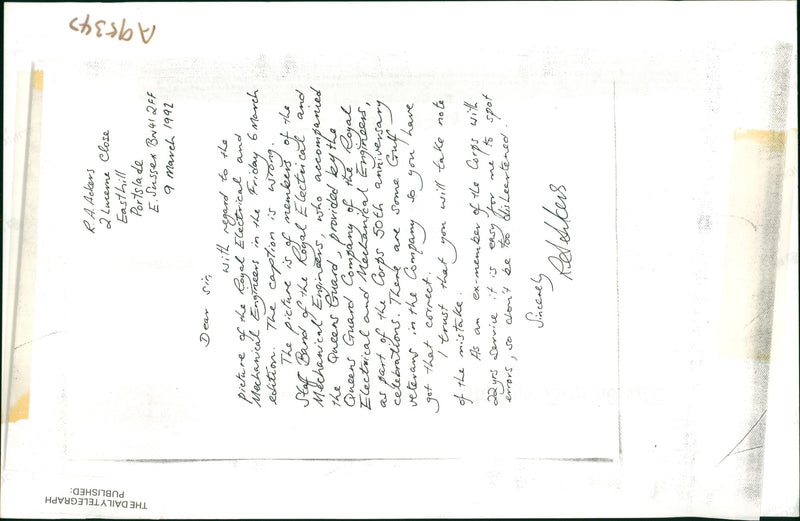 A95343
R.A. Ackers
2 Lucerne Close
Easthill
Portslade
E. Sussex BN41 2FF
9 March 1992
Dear Sir,
With regard to the
picture of the Royal Electrical and
Mechanical Engineers in the Friday 6 March
edition. The caption is wrong.
The picture is of members of the
Staff Band of the Royal Electrical and
Mechanical Engineers, who accompanied
the Queens Guard, provided by the
Queens Guard Company of the Royal
Electrical and Mechanical Engineers,
as part of the Corps 50th anniversary
celebrations. There are some Gulf
veterans in the Company so you have
got that correct.
I trust that you will take note
of the mistake.
As an ex-member of the Corps with
22yrs service it is easy for me to spot
errors, so don't be too disheartened.
Sincerely
RA Ackers
THE DAILY TELEGRAPH
PUBLISHED: